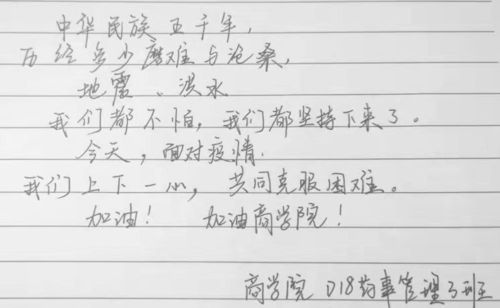 中华民族五千年,
历经多少磨难与沧桑,
地震、洪水
我们都不怕,我们都坚持下来了。
今天,面对疫情.
我们上下一心,共同克服困难。
加油! 加油商学院!
商学院 D18药事管理3班